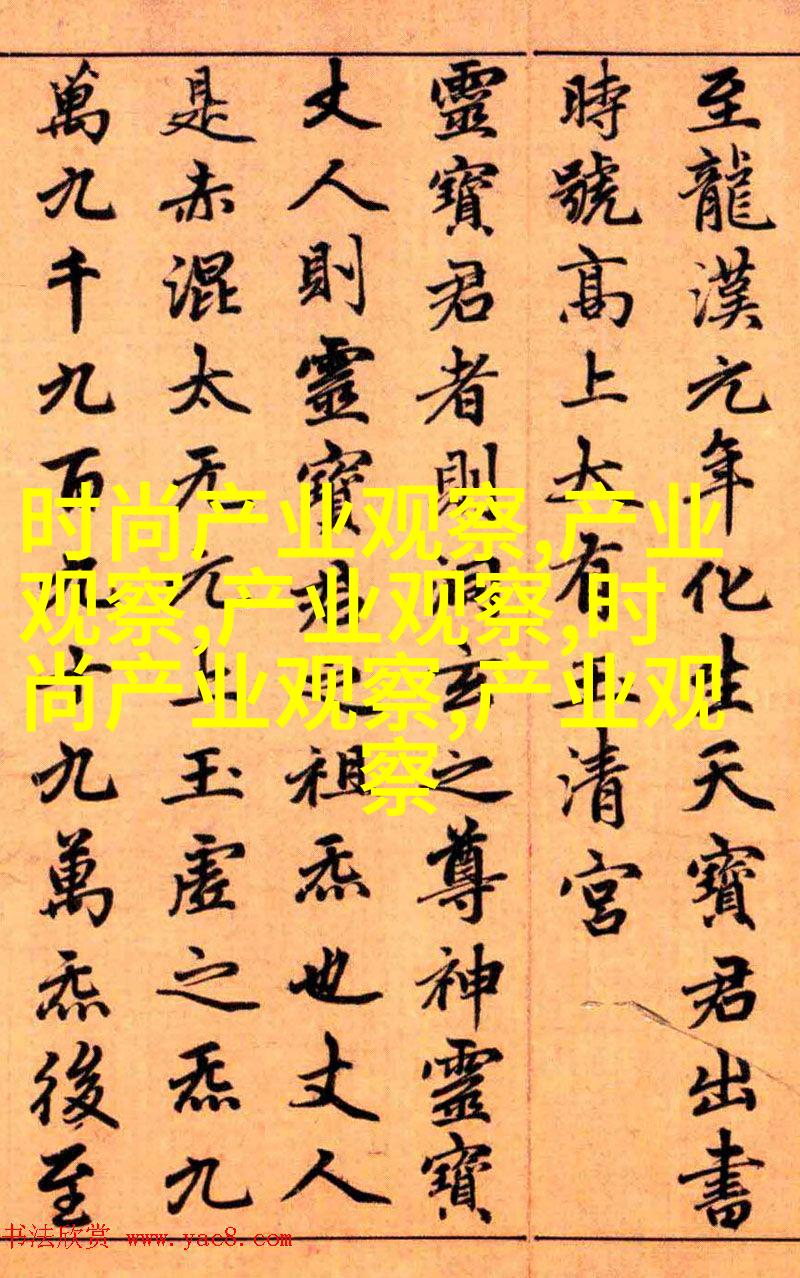 至龍漢元年化生天寶君出書
時號高上大有玉清宮
靈寶君者則洞玄之尊神靈寶
丈人則靈寶君之祖炁也丈人
是赤混太无元上玉虛之炁九
萬九千九百九十九萬炁後至
时尚产业观察,产业
观察,产业观察,时
尚产业观察,产业观
察
书法欣赏 www.yac8.com